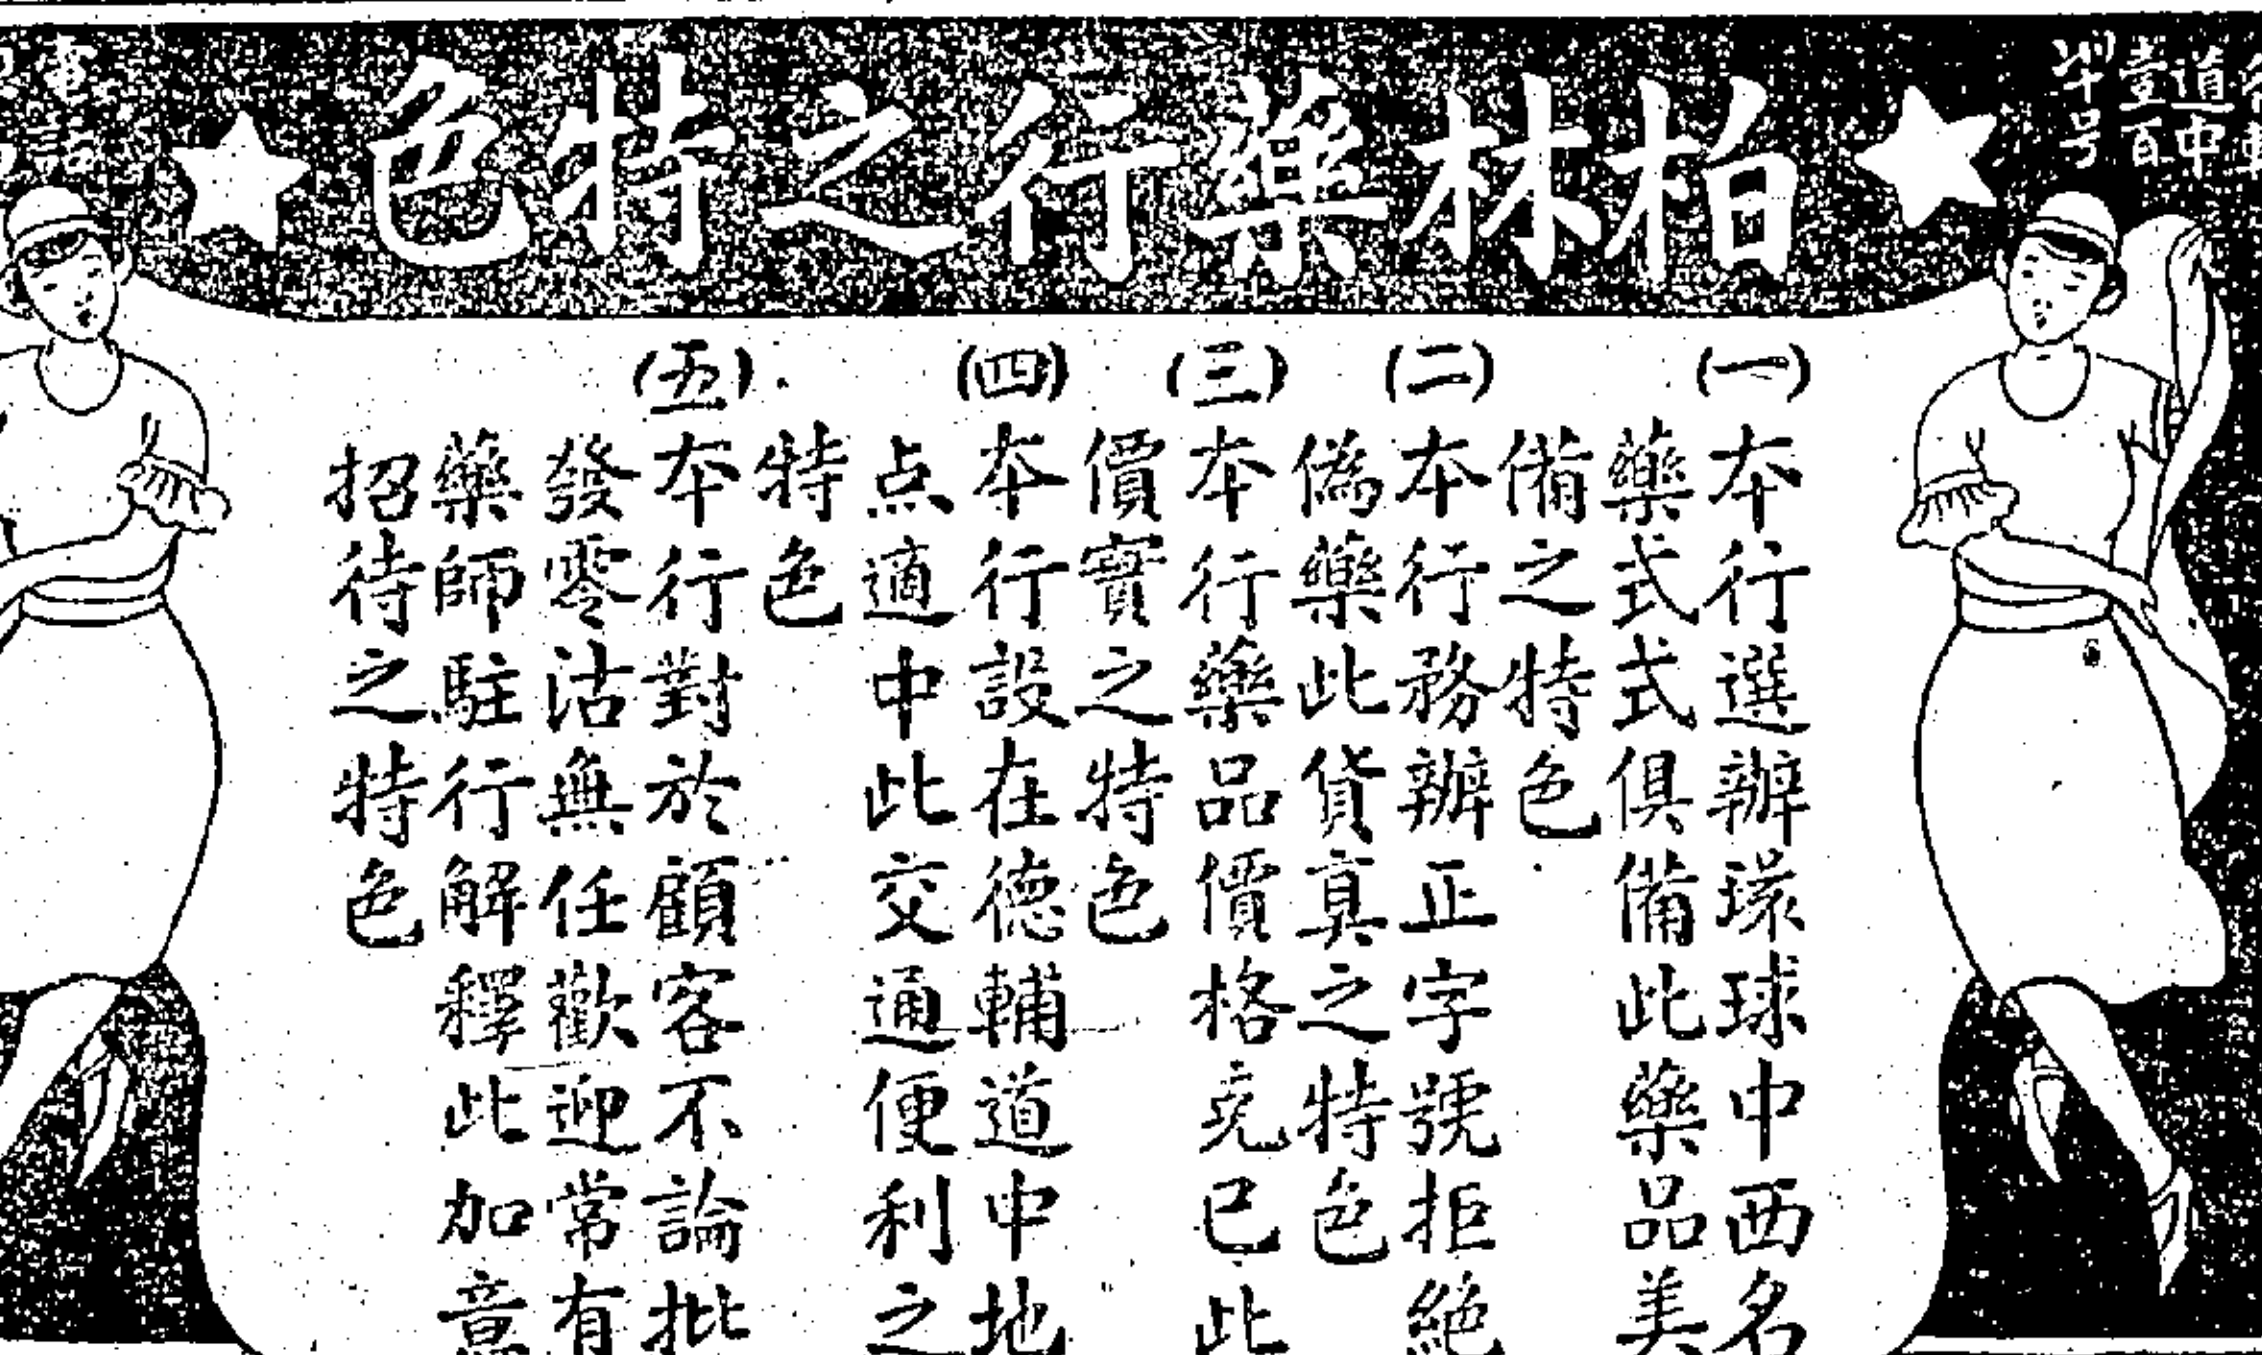 柏林藥行之特色
道中
壹百
號
(一)本行選辦環球中西名
藥式式俱備此藥品美
備之特色
(二)本行務辦正字號拒絕
偽藥此貨真之特色
(三)本行藥品價格克已此
價實之特色
(四)本行設在德輔道中地
点適中此交通便利之
特色
(五)本行對於顧客不論批
發零沽無任歡迎常有
藥師駐行解釋此加意
招待之特色
電話